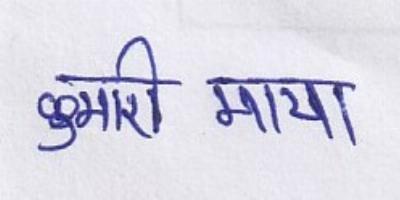 कुमारी माया